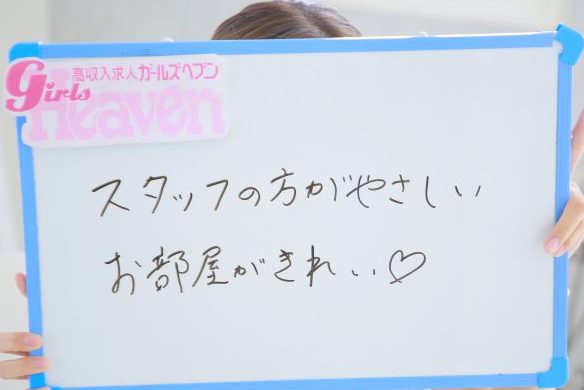 高収入求人ガールズヘブン
Girls
Heaven
スタッフの方がやさしい
お部屋がきれい♡